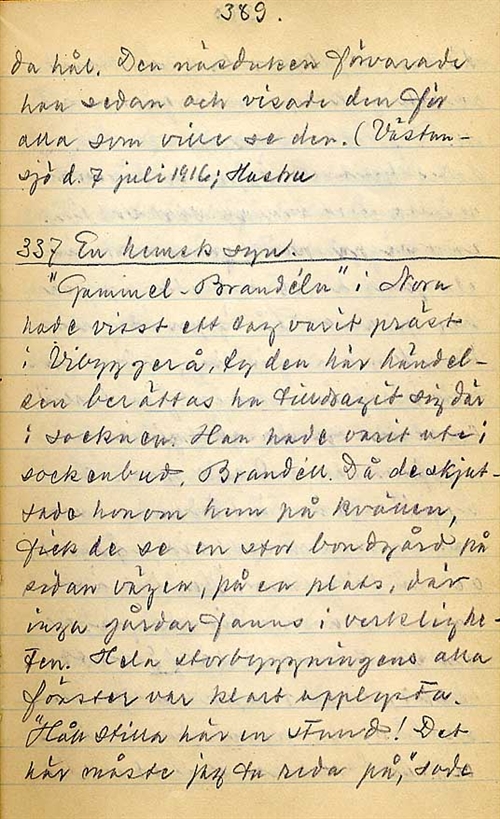 389.
da hål. Den näsduken förvarade
han sedan och visade den för
alla som ville se den. (Västan-
sjö d. 7 juli 1916; Hustru
337 En hemsk syn.
"Gammel-Brandéln" i Nora
hade visst ett tag varit präst
i Vibyggerå, ty den här händel-
sen berättas ha tilldragit sig där
i socknen. Han hade varit ute i
sockenbud, Brandéll. Då de skjut-
sade honom hem på kvällen,
fick de se en stor bondgård på
sidan vägen, på en plats, där
inga gårdar fanns i verklighe-
ten. Hela storbyggningens alla
fönster var klart upplysta.
"Håll stilla här en stund! Det
här måste jag ta reda på," sade